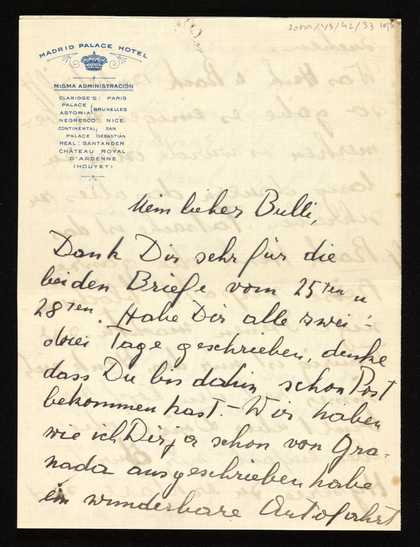 MADRID PALACE HOTEL
MISMA ADMINISTRACIÓN
CLARIDGE'S: PARIS
PALACE
ASTORIA BRUXELLES
NEGRESCO NICE
CONTINENTAL SAN
PALACE SEBASTIAN
REAL: SANTANDER
CHÂTEAU ROYAL
D'ARDENNE
(HOUYET)
Mein lieber Bulli,
Dank Dir sehr für die
beiden Briefe vom 25ten u
28ten. Habe Dir alle zwei-
drei Tage geschrieben, denke
dass Du bis dahin schon Post
bekommen hast. – Wir haben
wie ich Dir ja schon von Gra-
nada aus geschrieben habe
ein wunderbare Autofahrt